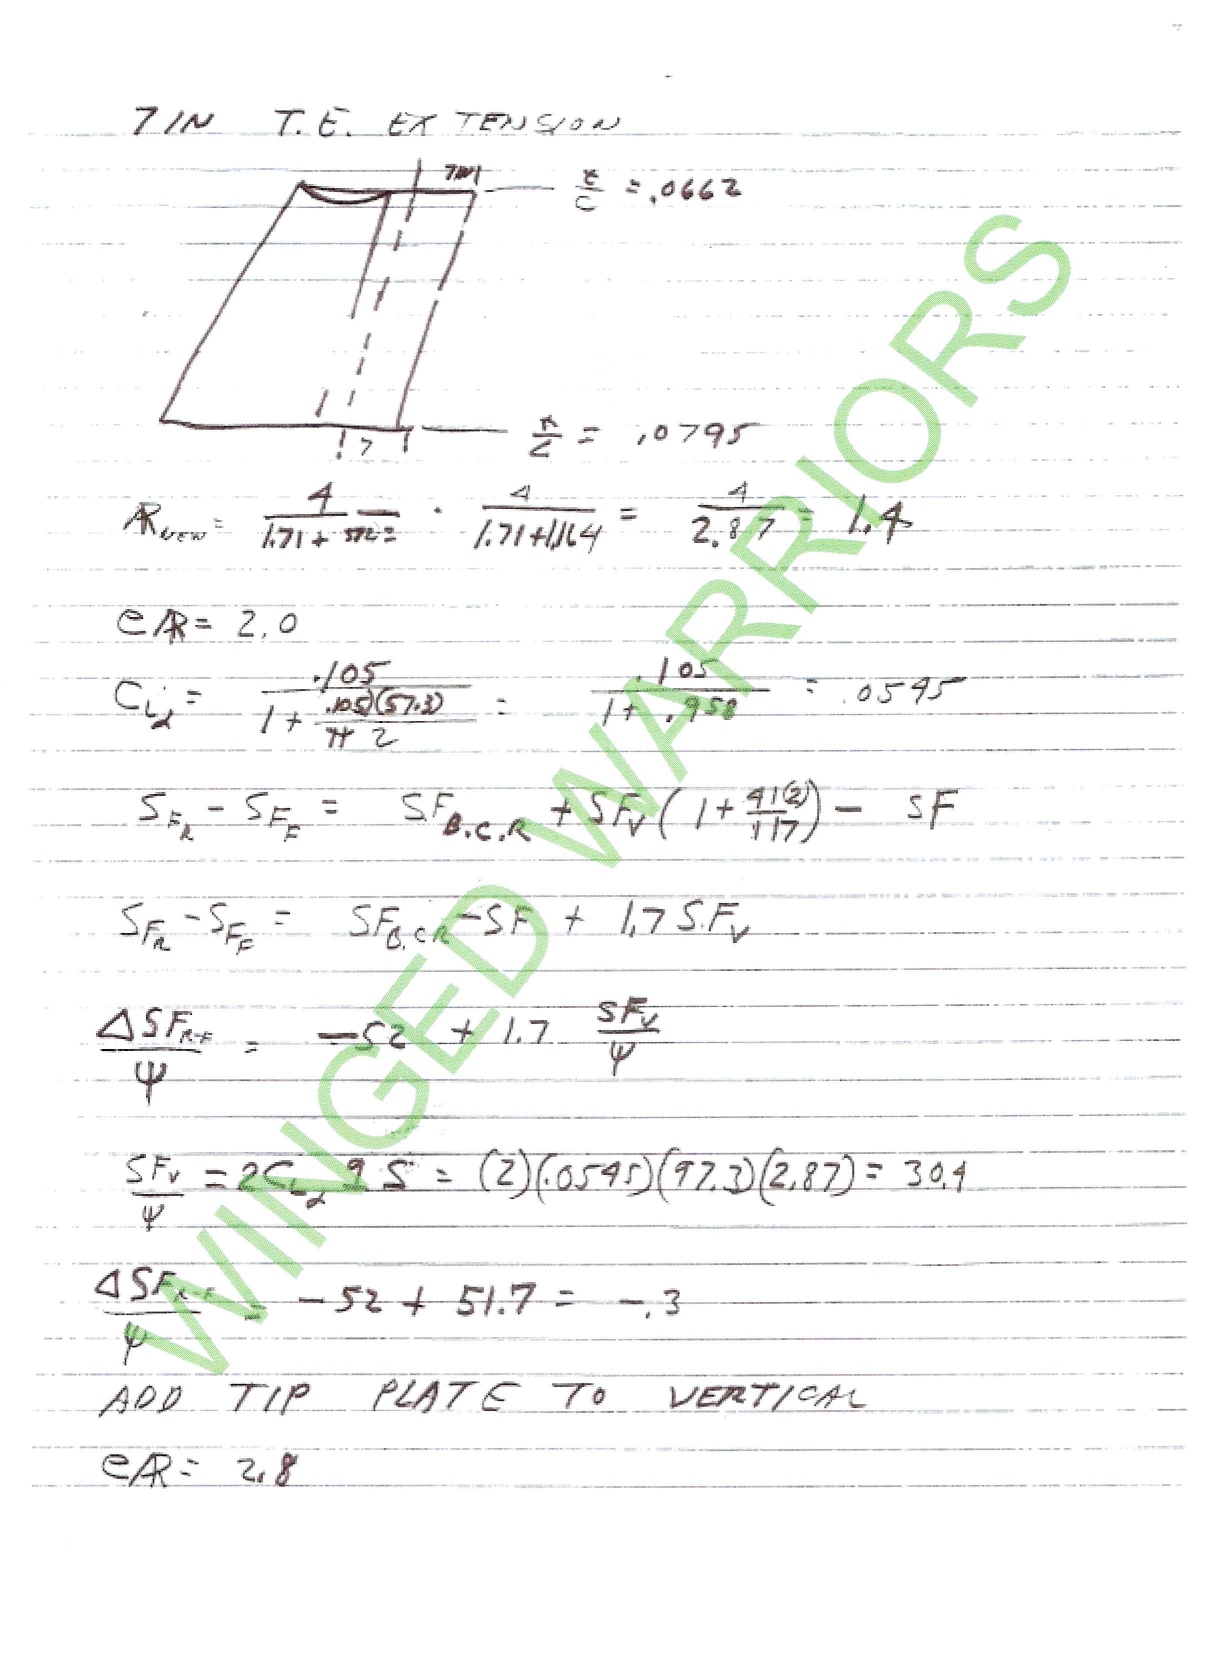 7 IN T.E. EXTENSION
7IN
t/c = .0662
7
t/c = .0795
AR NEW = 4/(1.71 + .582 2) · 4/(1.71+1.164) = 4/2.87 = 1.4
eAR = 2.0
CLα = .105/(1 + (.105)(57.3)/(π 2)) = .105/(1 + .958) = .0545
SFR - SFF = SFB.C.R + SFV (1 + 41(2)/117) - SF
SFR - SFF = SFB.C.R - SF + 1.7 S.FV
ΔSFR-F/ψ = -52 + 1.7 SFV/ψ
SFV/ψ = 2CLα q S = (2)(.0545)(97.3)(2.87) = 30.4
ΔSFR-F/ψ = -52 + 51.7 = -.3
ADD TIP PLATE TO VERTICAL
eAR = 2.8
WINGED WARRIORS